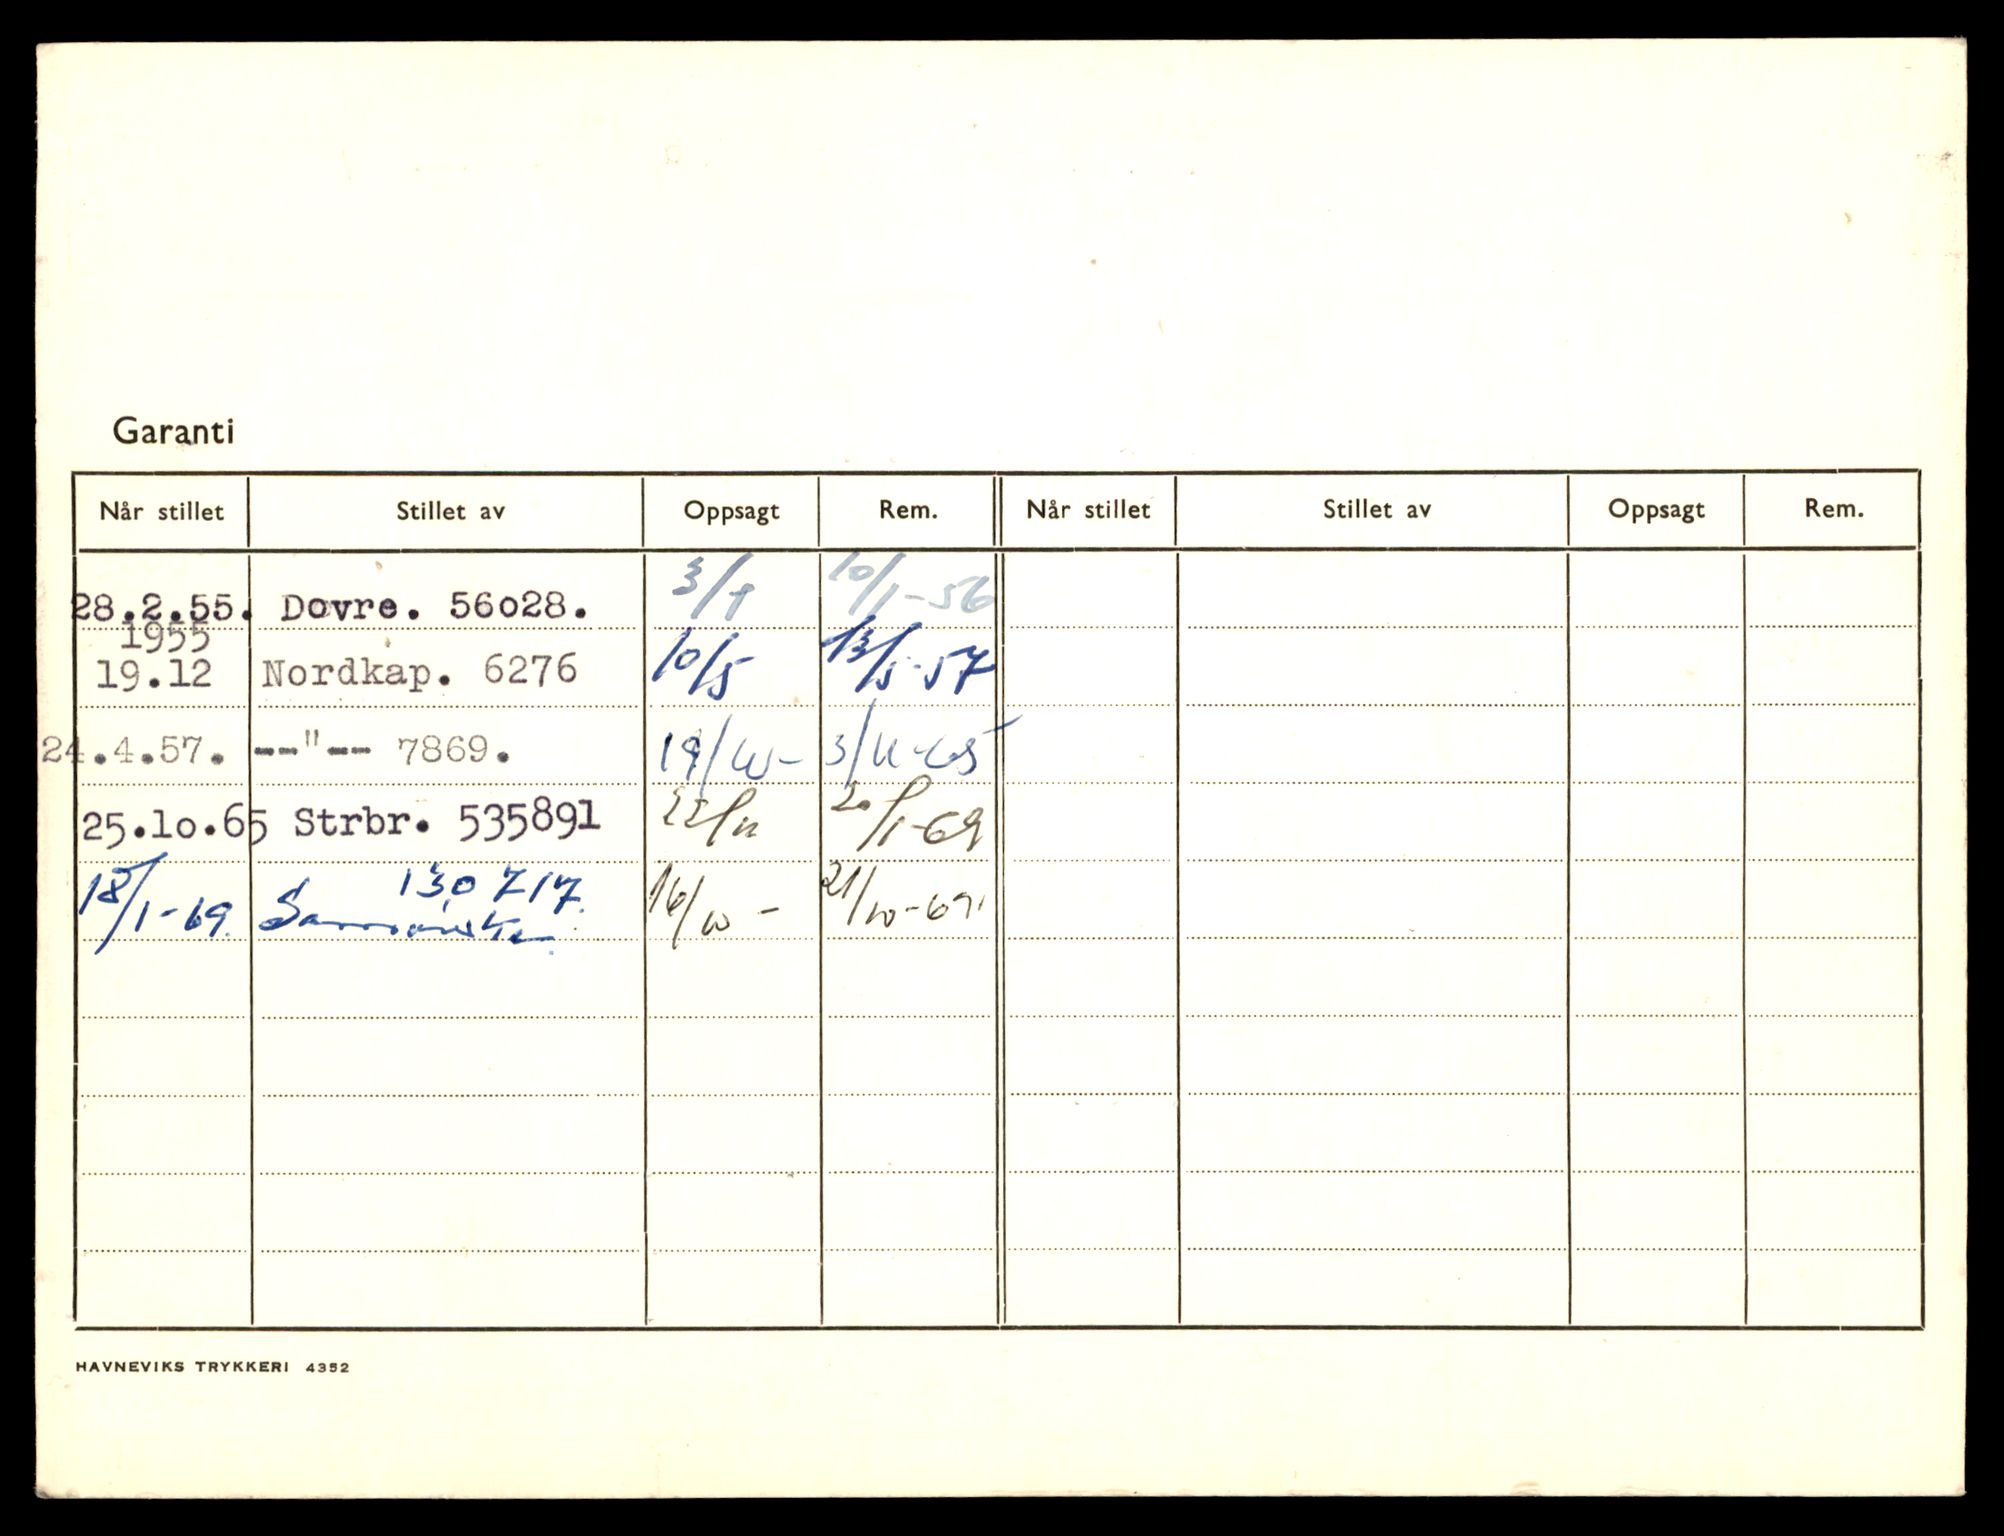 Garanti
Når stillet Stillet av Oppsagt Rem. Når stillet Stillet av Oppsagt Rem.
28.2.55. Dovre. 56028. 3/1 10/1-56
1955
19.12 Nordkap. 6276 10/5 13/5-57
24.4.57. --"-- 7869. 19/10- 3/11-65
25.10.65 Strbr. 535891 22/11 20/1-69
130717.
18/1-69. Samvirke 16/10- 21/10-69.
HAVNEVIKS TRYKKERI 4352